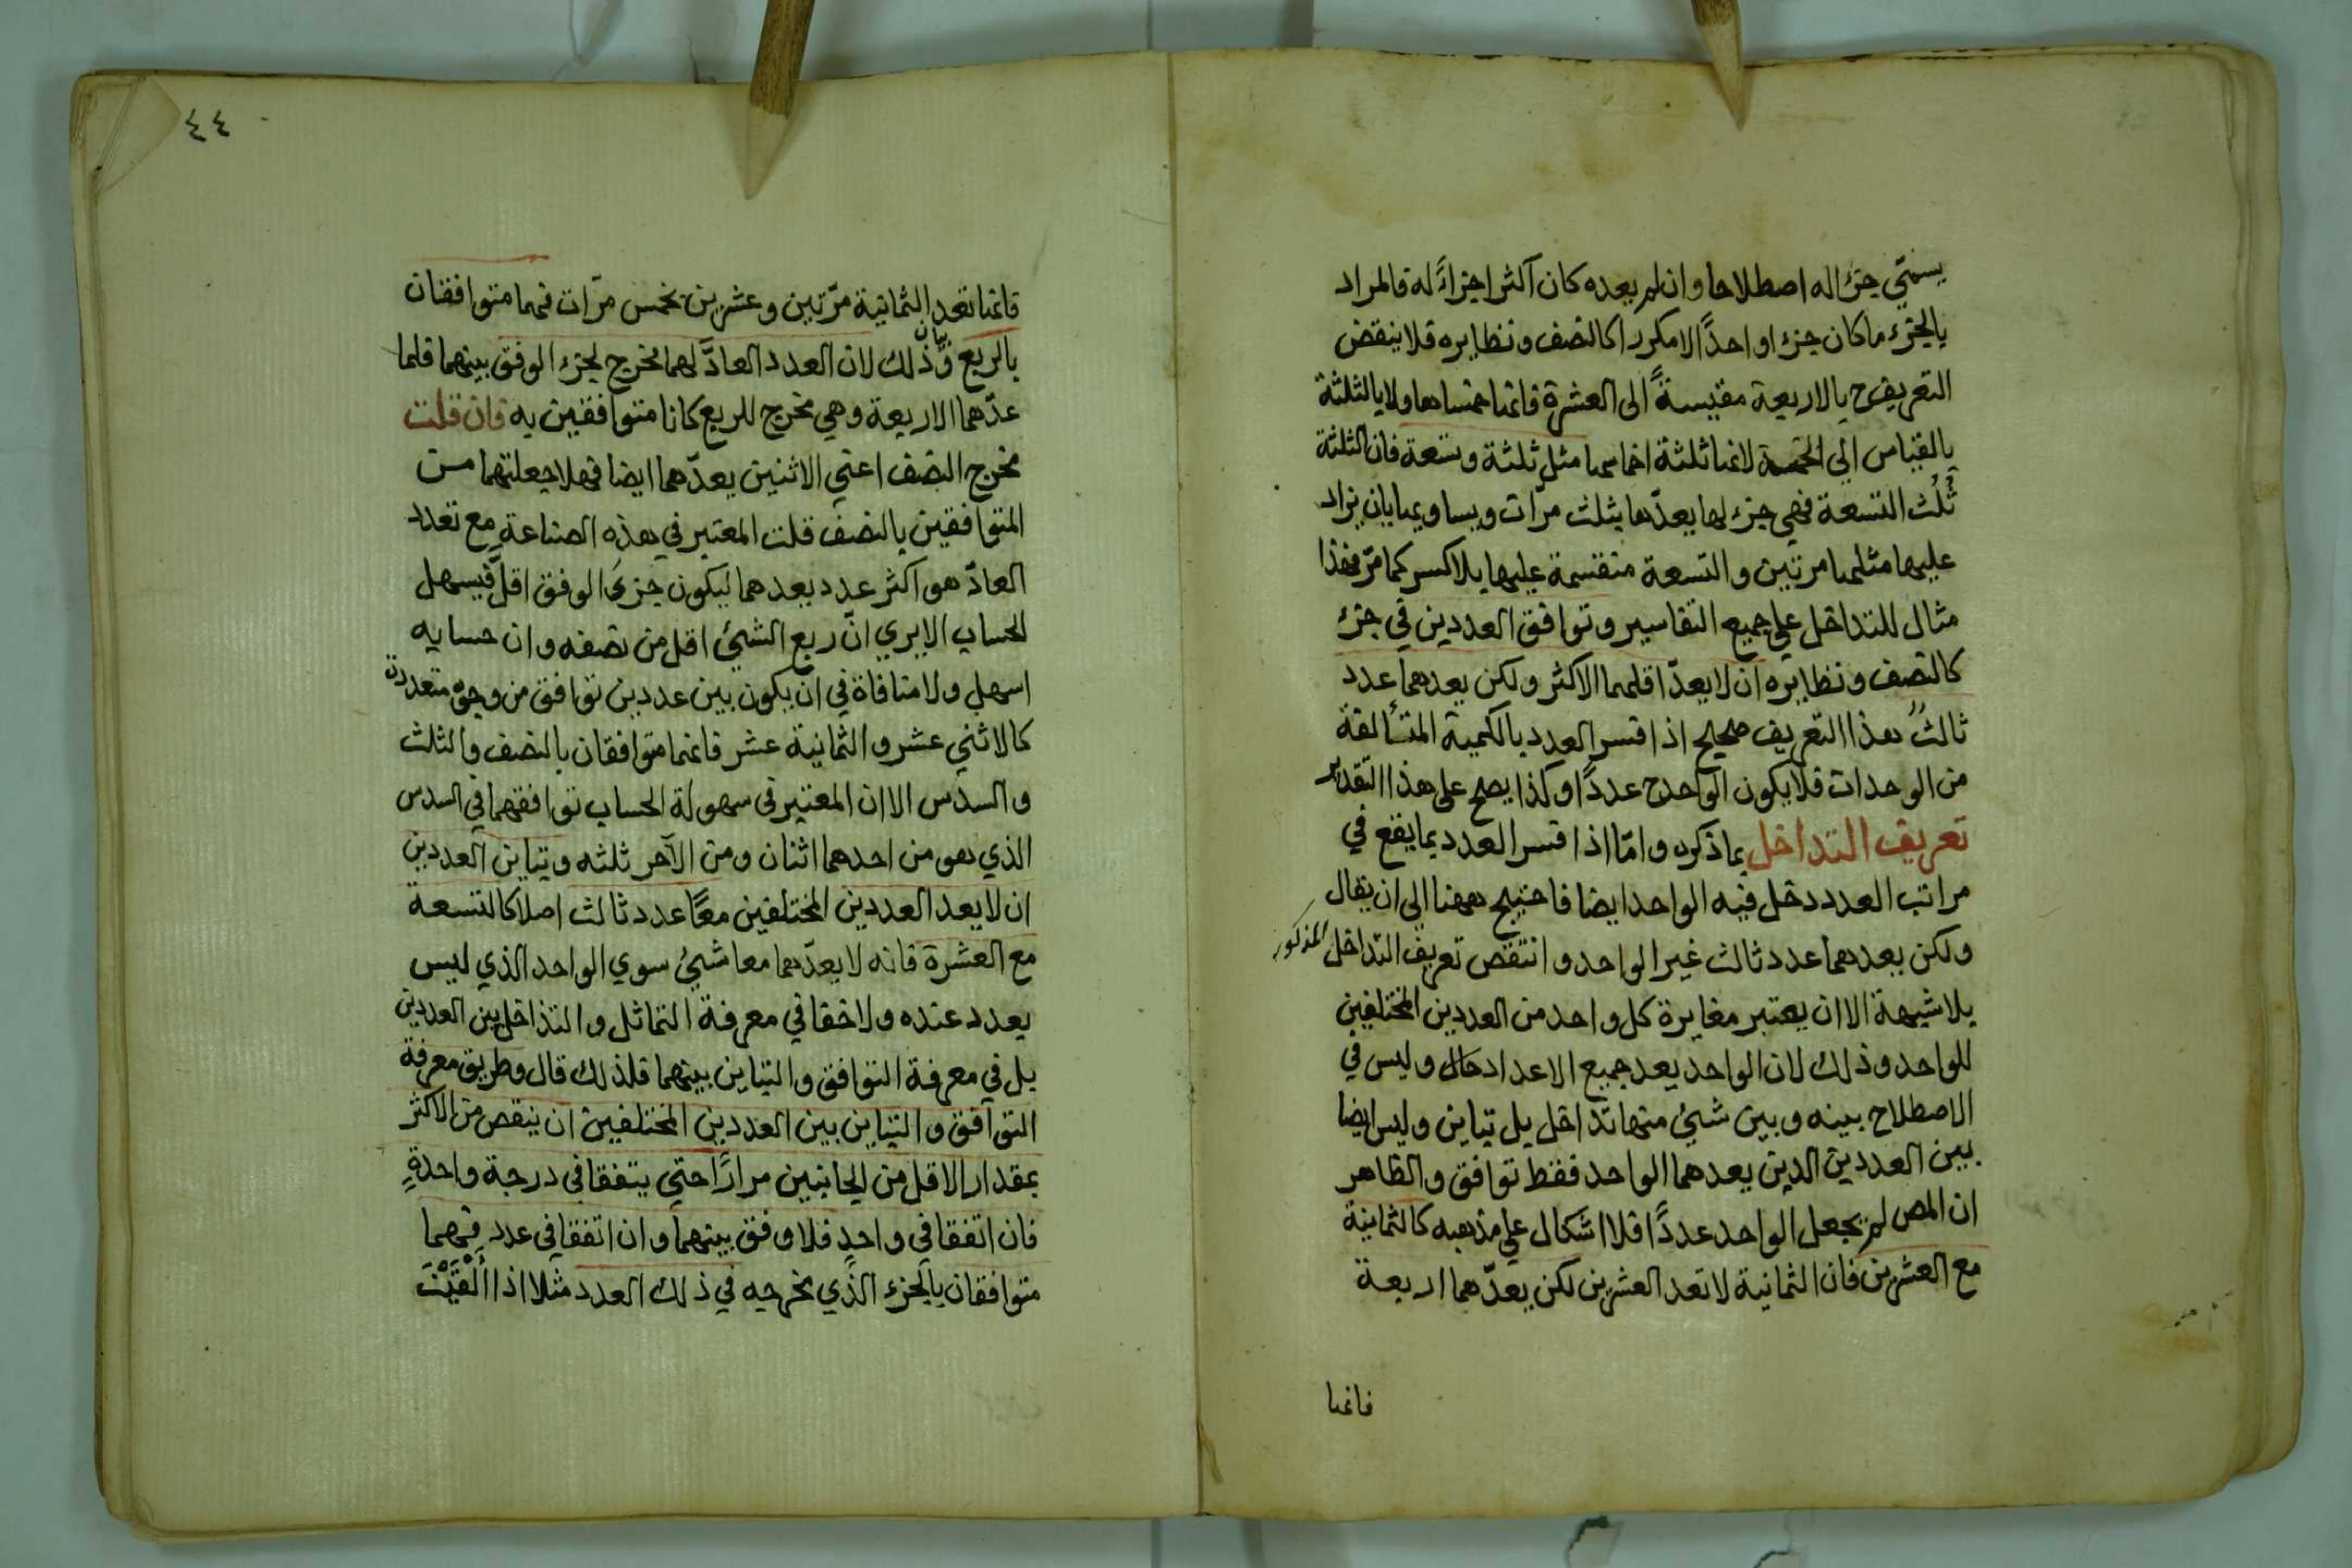 يسمّي جزءا له اصطلاحا وان لم يعده كان اكثر اجزاءً له فالمراد
بالجزء ما كان جزءا واحدًا لا مكررا كالنصف ونظايره فلا ينقض
التعريف ح بالاربعة مقيسةً الى العشرة فانها خمساها ولا بالثلثة
بالقياس الي الخمسة لانها ثلثة اخماسها مثل ثلثة وتسعة فان الثلثة
ثُلُث التسعة فهي جزء لها يعدّها بثلث مرّات ويساويها بان يزاد
عليها مثلها مرتين والتسعة منقسمة عليها بلا كسر كما مرّ فهذا
مثال للتداخل علي جميع التفاسير وتوافق العددين في جزء
كالنصف ونظايره ان لا يعدّ اقلهما الاكثر ولكن يعدهما عدد
ثالثٌ هذا التعريف صحيح اذا فسر العدد بالكمية المتألفة
من الوحدات فلا يكون الواحد ح عددًا وكذا يصح على هذا التقدير
تعريف التداخل بما ذكره وامّا اذا فسر العدد بما يقع في
مراتب العدد دخل فيه الواحد ايضا فاحتيج ههنا الي ان يقال
ولكن يعدهما عدد ثالث غير الواحد وانتقض تعريف التداخل المذكور
بلا شبهة الا ان يعتبر مغايرة كل واحد من العددين المختلفين
للواحد وذلك لان الواحد يعد جميع الاعداد وليس في
الاصطلاح بينه وبين شيئ منها تداخل بل تباين وليس ايضا
بين العددين الذين يعدهما الواحد فقط توافق والظاهر
ان المص لم يجعل الواحد عددًا فلا اشكال علي مذهبه كالثمانية
مع العشرين فان الثمانية لا تعد العشرين لكن يعدّهما اربعة
فانها
٤٤
فانها تعد الثمانية مرّتين وعشرين بخمس مرّات فهما متوافقان
بالربع وبيان ذلك لان العدد العادّ لهما مخرج لجزء الوفق بينهما فلما
عدّهما الاربعة وهي مخرج للربع كانا متوافقين به فان قلت
مخرج النصف اعني الاثنين يعدّهما ايضا فهلا جعلتهما من
المتوافقين بالنصف قلت المعتبر في هذه الصناعة مع تعدد
العادّ هو اكثر عدد يعدهما ليكون جزءَ الوفق اقلّ فيسهل
الحساب الا يري انّ ربع الشيئ اقل من نصفه وان حسابه
اسهل ولا منافاة في ان يكون بين عددين توافق من وجوه متعددة
كالاثني عشر والثمانية عشر فانهما متوافقان بالنصف والثلث
والسدس الا ان المعتبر في سهولة الحساب توافقهما في السدس
الذي هو من احدهما اثنان ومن الآخر ثلثه وتباين العددين
ان لا يعد العددين المختلفين معًا عدد ثالث اصلا كالتسعة
مع العشرة فانه لا يعدّهما معا شيئ سوي الواحد الذي ليس
بعدد عنده ولا خفا في معرفة التماثل والتداخل بين العددين
بل في معرفة التوافق والتباين بينهما فلذلك قال وطريق معرفة
التوافق والتباين بين العددين المختلفين ان ينقص من الاكثر
بمقدار الاقل من الجانبين مرارًا حتي يتفقا في درجة واحدةٍ
فان اتفقا في واحدٍ فلا وفق بينهما وان اتفقا في عدد فهما
متوافقان بالجزء الذي مخرجه في ذلك العدد مثلا اذا ألْقَيْتَ